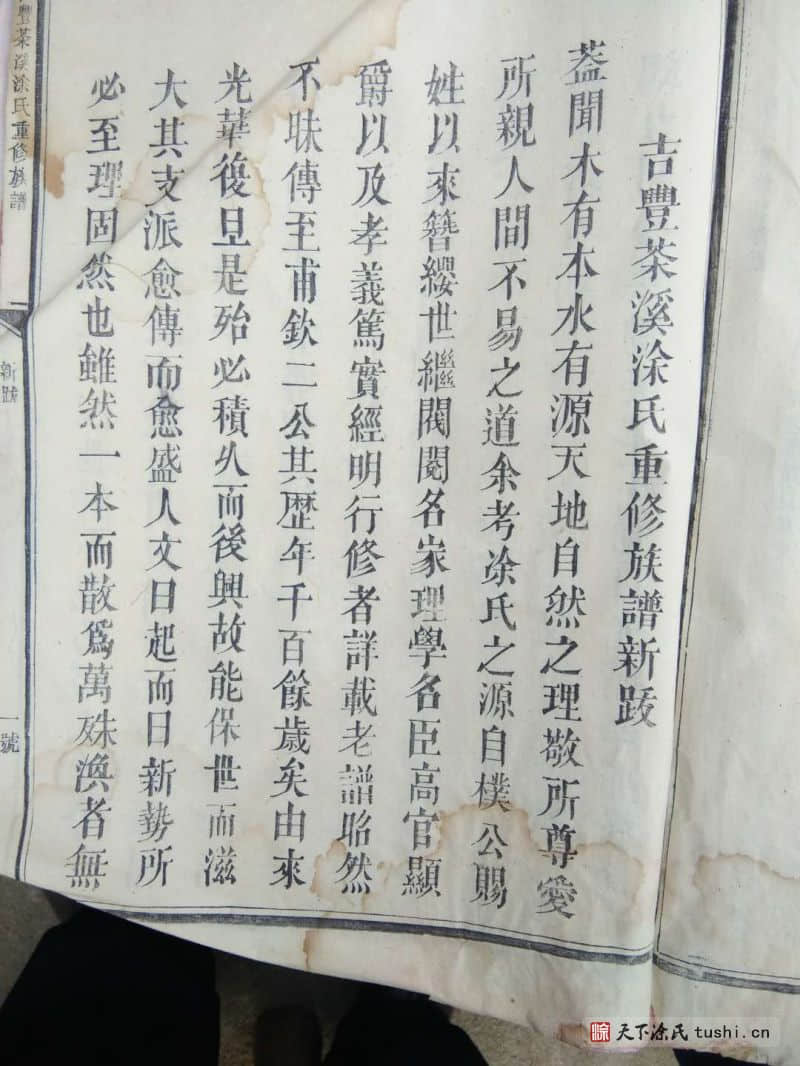 吉豐茶溪涂氏重修族譜新跋
葢聞木有本水有源天地自然之理敬所尊愛
所親人間不易之道余考涂氏之源自樸公賜
姓以來簪纓世繼閥閱名家理學名臣高官顯
爵以及孝義篤實經明行修者詳載老譜昭然
不昧傳至甫欽二公其歴年千百餘歲矣由來
光華復旦是殆必積久而後興故能保世而滋
大其支派愈傳而愈盛人文日起而日新勢所
必至理固然也雖然一本而散爲萬殊渙者無
豐茶溪涂氏重修族譜
新跋
一號
天下涂氏 tushi.cn